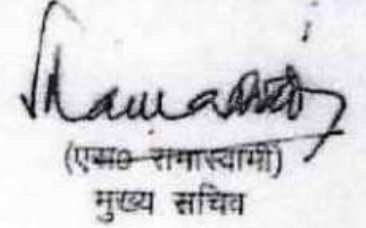 (एस0 रामास्वामी)
मुख्य सचिव